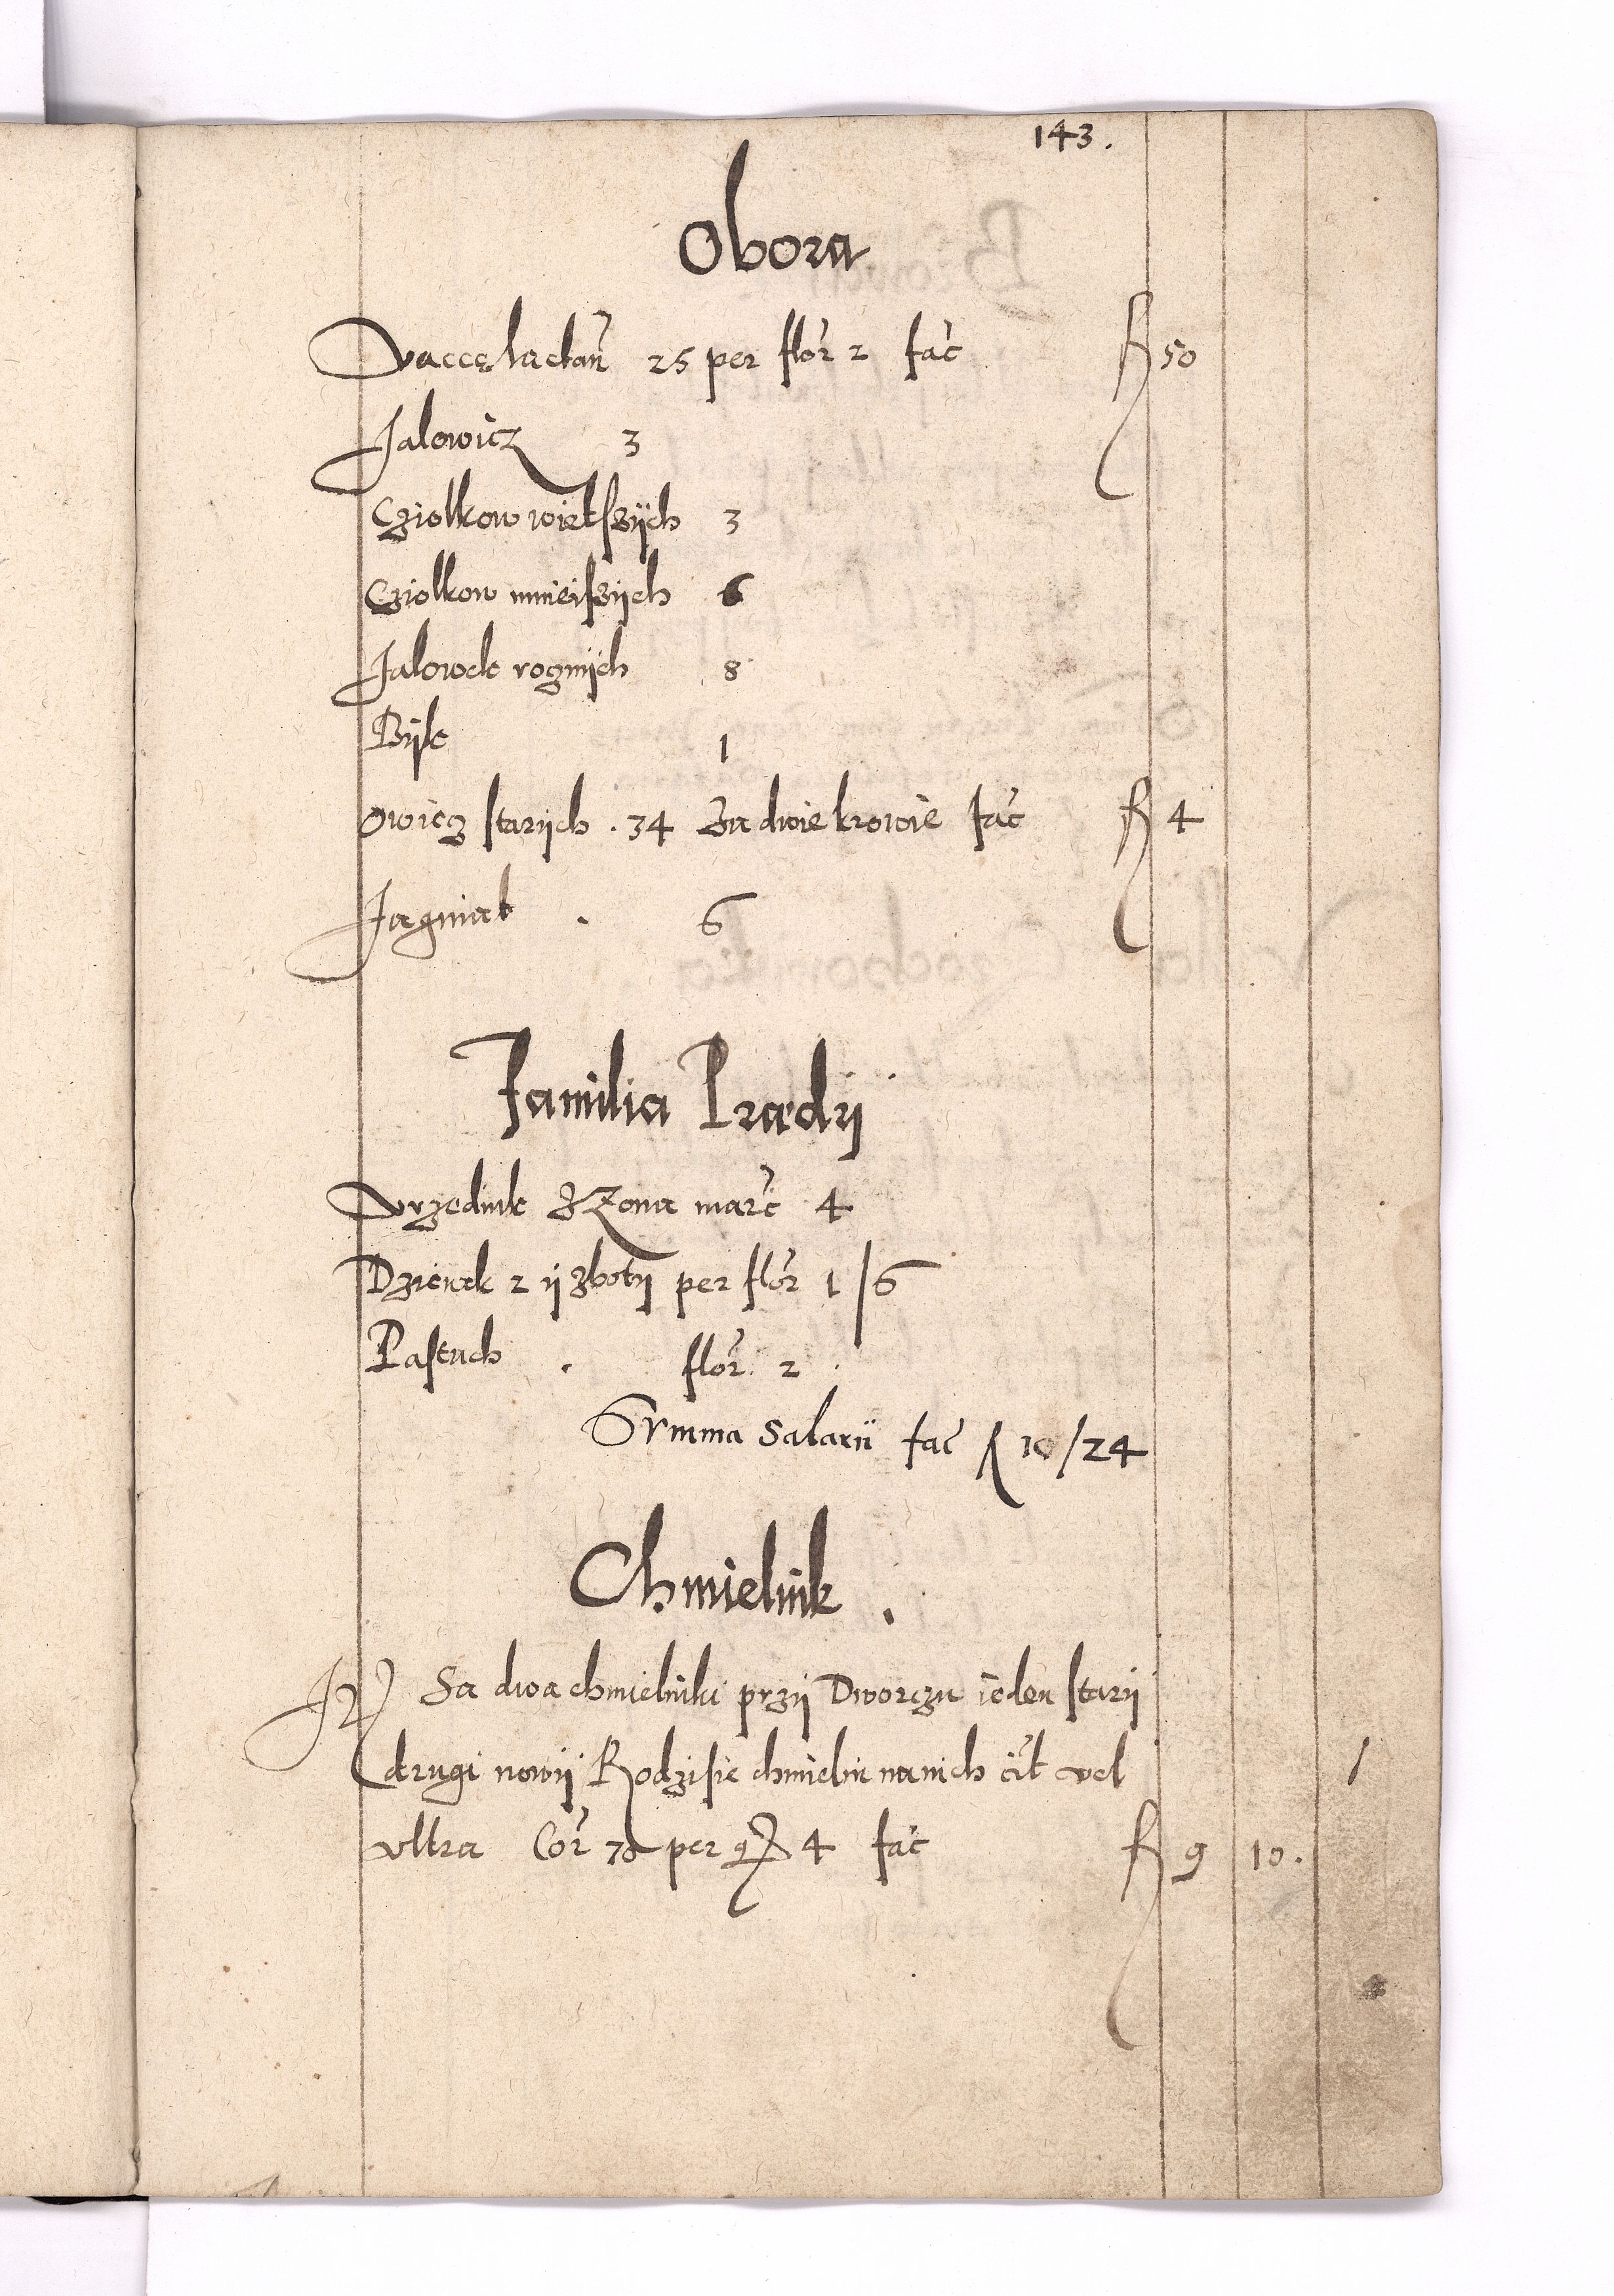 143.
Obora
Vaccę lactañ 25 per flor 2 fac̄ f 50
Jalowicz 3
Cziolkow wietszÿch 3
Cziolkow mnieiszÿch 6
Jalowek rognÿch 8
Bÿk 1
Owicz starÿch . 34 Za dwie krowie fac̄ f 4
Jagniat . 6
Familia Prædij
Vrzednik z Zona marc̄ 4
Dziewek 2 ÿ zbotÿ per flor 1/6
Pastuch . flor. 2 .
Summa Salarii fac̄ f 10/24
Chmielnik .
Sa dwa chmielniki przÿ Dworczu ieden starÿ
drugi nowÿ Rodzi sie chmielu na nich cit vel
vltra Cor 70 per g 4 fac̄ f 9 10 .